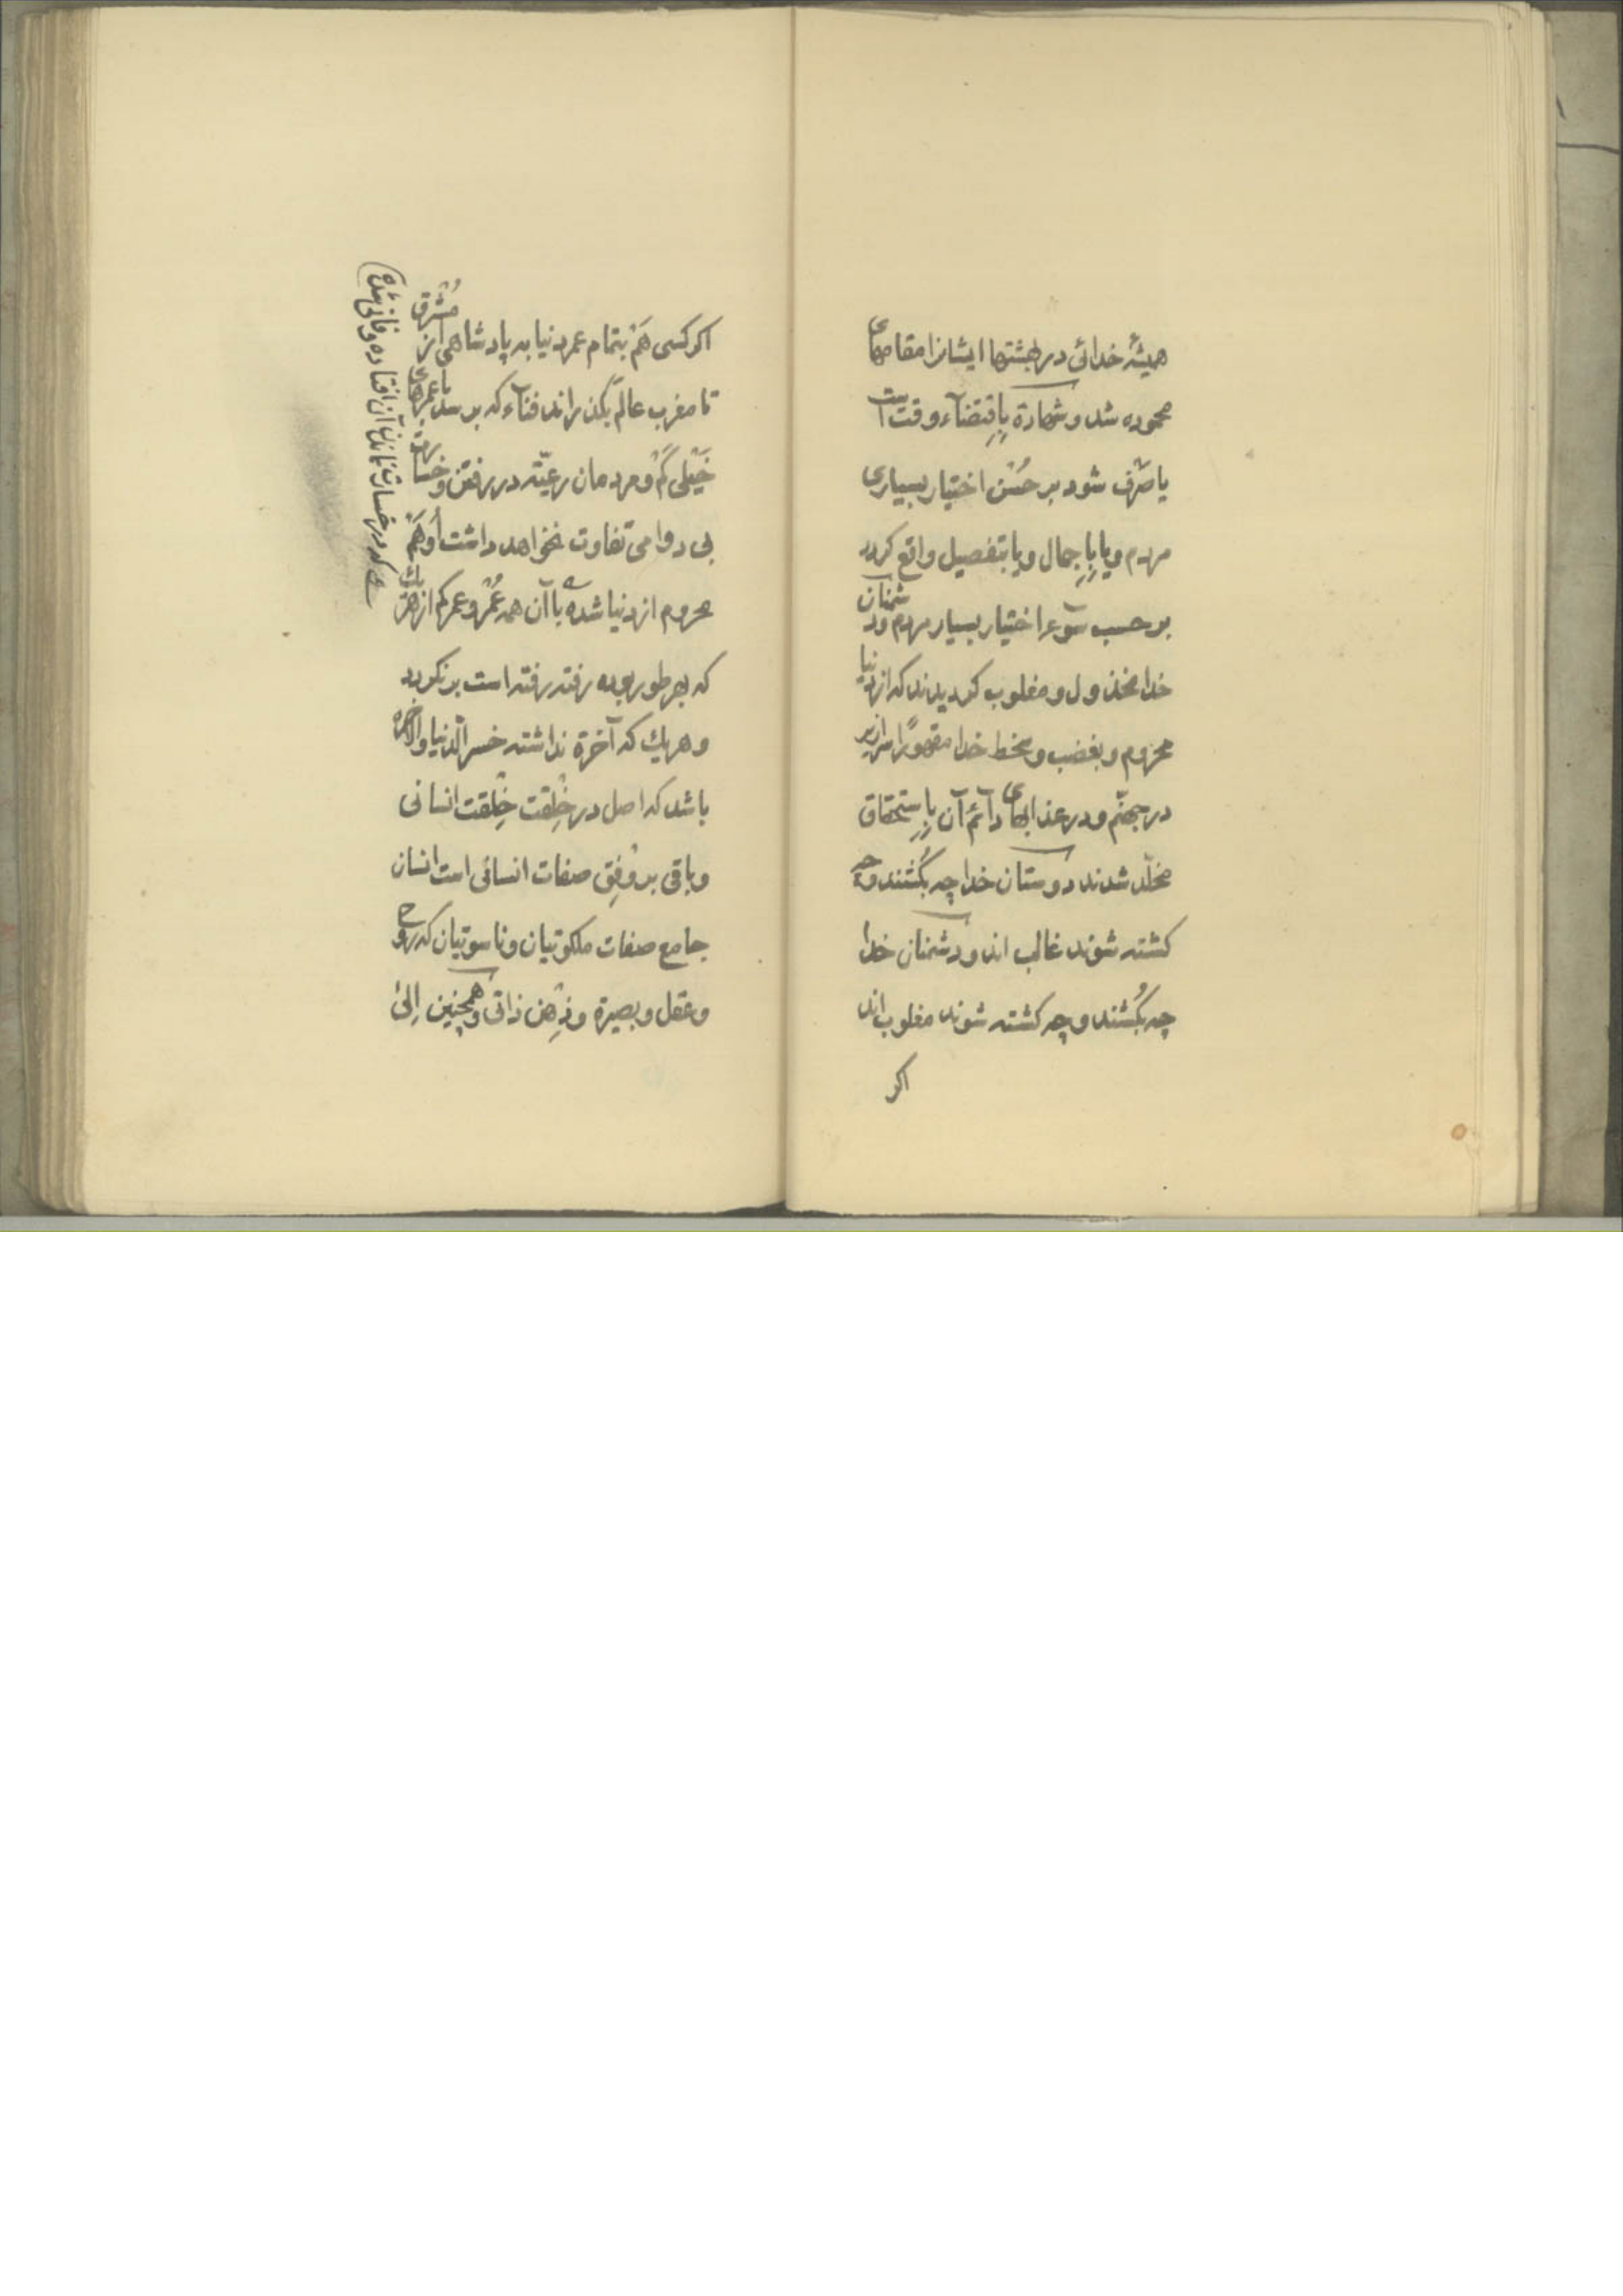 همیشهٔ خدائی در بهشتها ایشانرا مقامهای
محموده شد و شهادة بِاِقتضآء وقت است
یا صَرْف شود بر حُسْن اختیار بسیاری
مردم و یا بِاِجمال و یا بتفصیل واقع کردد
بر حسب سوٓء اختیار بسیار مردم و دشمنان
خدا مخذول و مغلوب کردیدند که از دنیا
محروم و بغضب و سخط خدا مقهورًا سرازیر
در جهنّم و در عذابهای دآئم آن بِاِستحقاق
مخلّد شدند دوستان خدا چه بکُشند و چه
کشته شوند غالب اند و دشمنان خدا
چه بکُشند و چه کشته شوند مغلوب اند
اکر
اکر کسی هَمْ بتمام عمر دنیا به پادشاهی از مُشْرِق
تا مغرب عالم بکذراند فنآء که برسد با عمرهای
خَیْلی کَمْ و مردمان رعیّته در رفتن و خسارت
بی دوامی تفاوت نخواهد داشت اُو هَمْ
محروم از دنیا شده با آن همه عُمْر و عمر کم از هر یك
که بهر طور بوده رفته رفته است برنکردد
و هر یك که آخرة نداشته خسر الدّنیا والآخره
باشد که اصل در خِلْقت خِلْقت انسانی
و باقی بر وَفْقِ صفات انسانی است انسان
جامع صفات ملکوتیان و ناسوتیان که روح
و عقل و بصیرة و ذِهْن ذاتی و همچنین اِلیٰ
که در خسارت نماندن آن افتاده و فانی شده